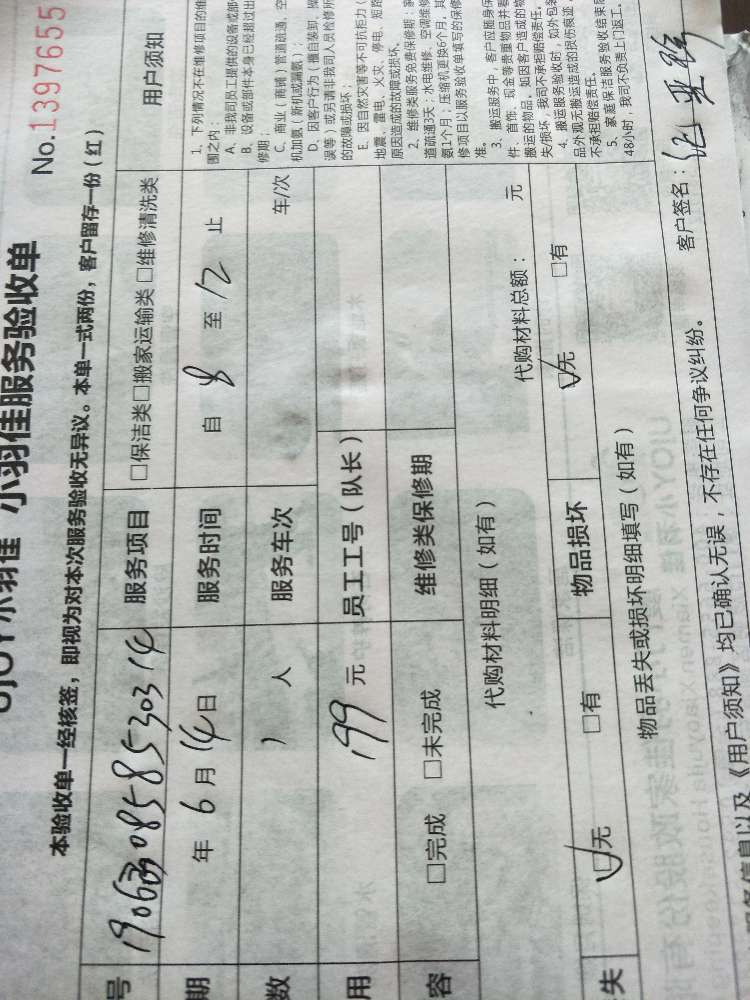 小羽佳服务验收单
No.1397655
本验收单一经核签，即视为对本次服务验收无异议。本单一式两份，客户留存一份（红）
号 服务项目 □保洁类□搬家运输类□维修清洗类 用户须知
期 年 6 月 14 日 服务时间 自 8 至 12 止
数 1 人 服务车次 车/次
用 199 元 员工工号（队长）
容 □完成 □未完成 维修类保修期
1、下列情况不在维修项目的维
围之内：
A、非我司员工提供的设备或部
B、设备或部件本身已经超过出
修期；
C、商业（商铺）管道疏通、空
机加氨（新机或漏氨）；
D、因客户行为（擅自装卸、操
误等）或另请非我司人员检修所
的故障或损坏；
E、因自然灾害等不可抗拒力（
地震、雷电、火灾、停电、短路
原因造成的故障或损坏。
2、维修类服务免费保修期：家
道疏通3天；水电维修、空调维修
氨1个月；压缩机更换6个月，其
修项目以服务验收单填写的保修
准。
3、搬运服务中，客户应随身保
件、首饰、现金等贵重物品并看
搬运的物品，如因客户造成的物
失/损坏，我司不承担赔偿责任。
4、搬运服务验收时，如外包装
品外观无搬运造成的损伤痕迹
不承担赔偿责任。
5、家庭保洁服务验收结束后
48小时，我司不负责上门返工。
代购材料明细（如有） 代购材料总额： 元
失 ☑无 □有 物品损坏 ☑无 □有
物品丢失或损坏明细填写（如有）
服务信息以及《用户须知》均已确认无误，不存在任何争议纠纷。 客户签名：